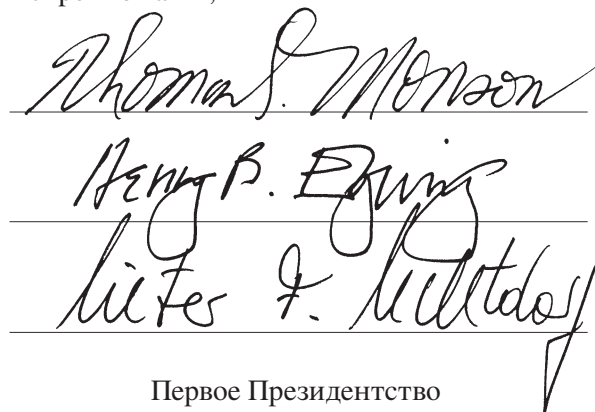 Thomas S. Monson
Henry B. Eyring
Dieter F. Uchtdorf
Первое Президентство